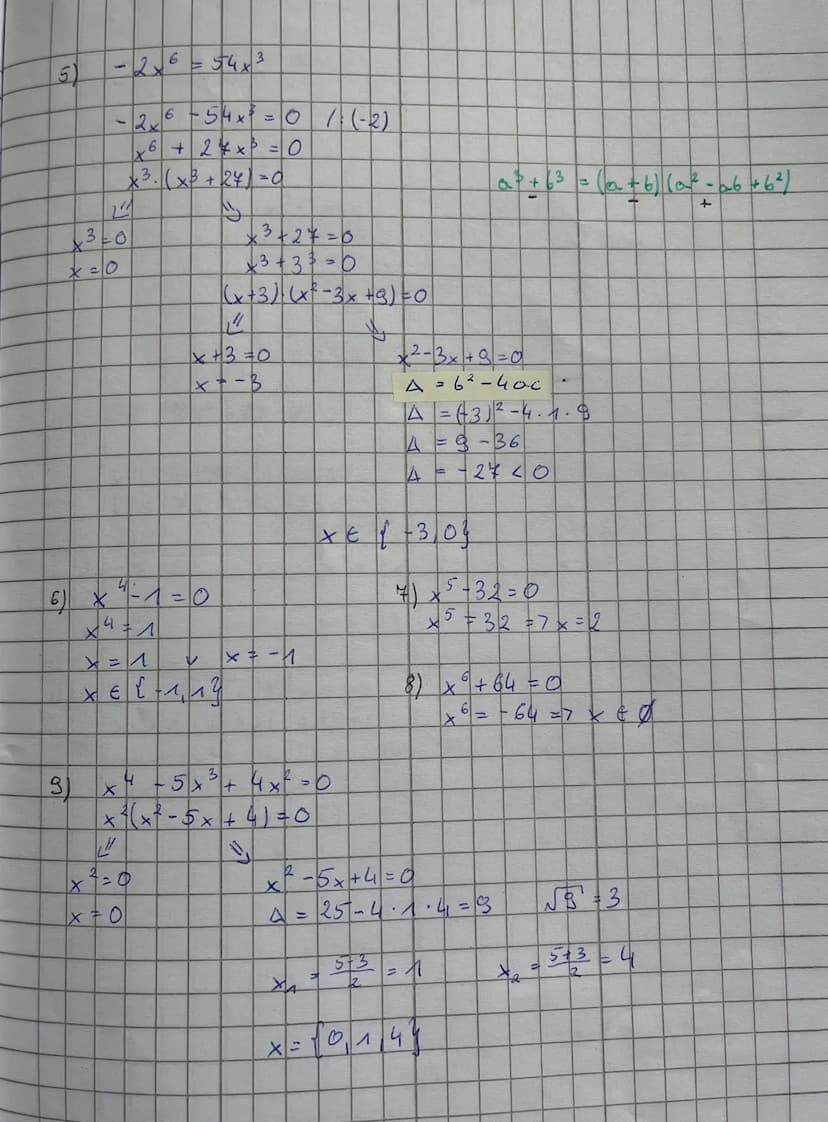 5) -2x⁶ = 54x³
-2x⁶ - 54x³ = 0 /:(-2)
x⁶ + 27x³ = 0
x³·(x³+27)=0
a³ + b³ = (a+b)(a² - ab + b²)
- - +
⇙ ⇘
x³=0 x³+27=0
x=0 x³+3³=0
(x+3)·(x²-3x+9)=0
⇙ ⇘
x+3=0 x²-3x+9=0
x=-3 Δ = b²-4ac
Δ =(-3)²-4·1·9
Δ = 9-36
Δ = -27<0
x ∈ {-3,0}
6) x⁴-1=0
x⁴=1
x=1 ∨ x=-1
x ∈ {-1,1}
7) x⁵-32=0
x⁵=32 => x=2
8) x⁶+64=0
x⁶=-64 => x ∈ ∅
9) x⁴ - 5x³ + 4x² = 0
x²(x²-5x+4)=0
⇙ ⇘
x²=0 x²-5x+4=0
x=0 Δ = 25-4·1·4=9 √9=3
x₁ = (5-3)/2 = 1 x₂ = (5+3)/2 = 4
x={0,1,4}